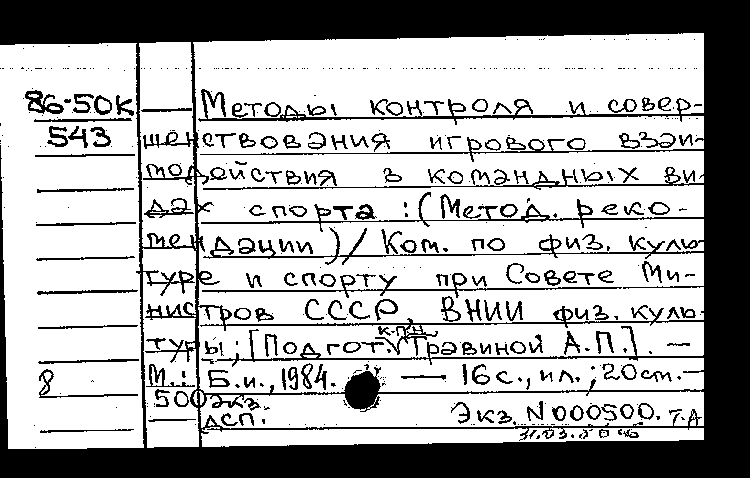 86-50к Методы контроля и совер-
543 шенствования игрового взаи-
модействия в командных ви-
дах спорта : (Метод. реко-
мендации) / Ком. по физ. куль-
туре и спорту при Совете Ми-
нистров СССР, ВНИИ физ. куль-
к.п.н.
туры; [Подгот. √ Травиной А.П.]. —
8 М.: Б.и., 1984. — 16 с., ил.; 20 см. —
500 экз.
ДСП. Экз. N000500. Т.А